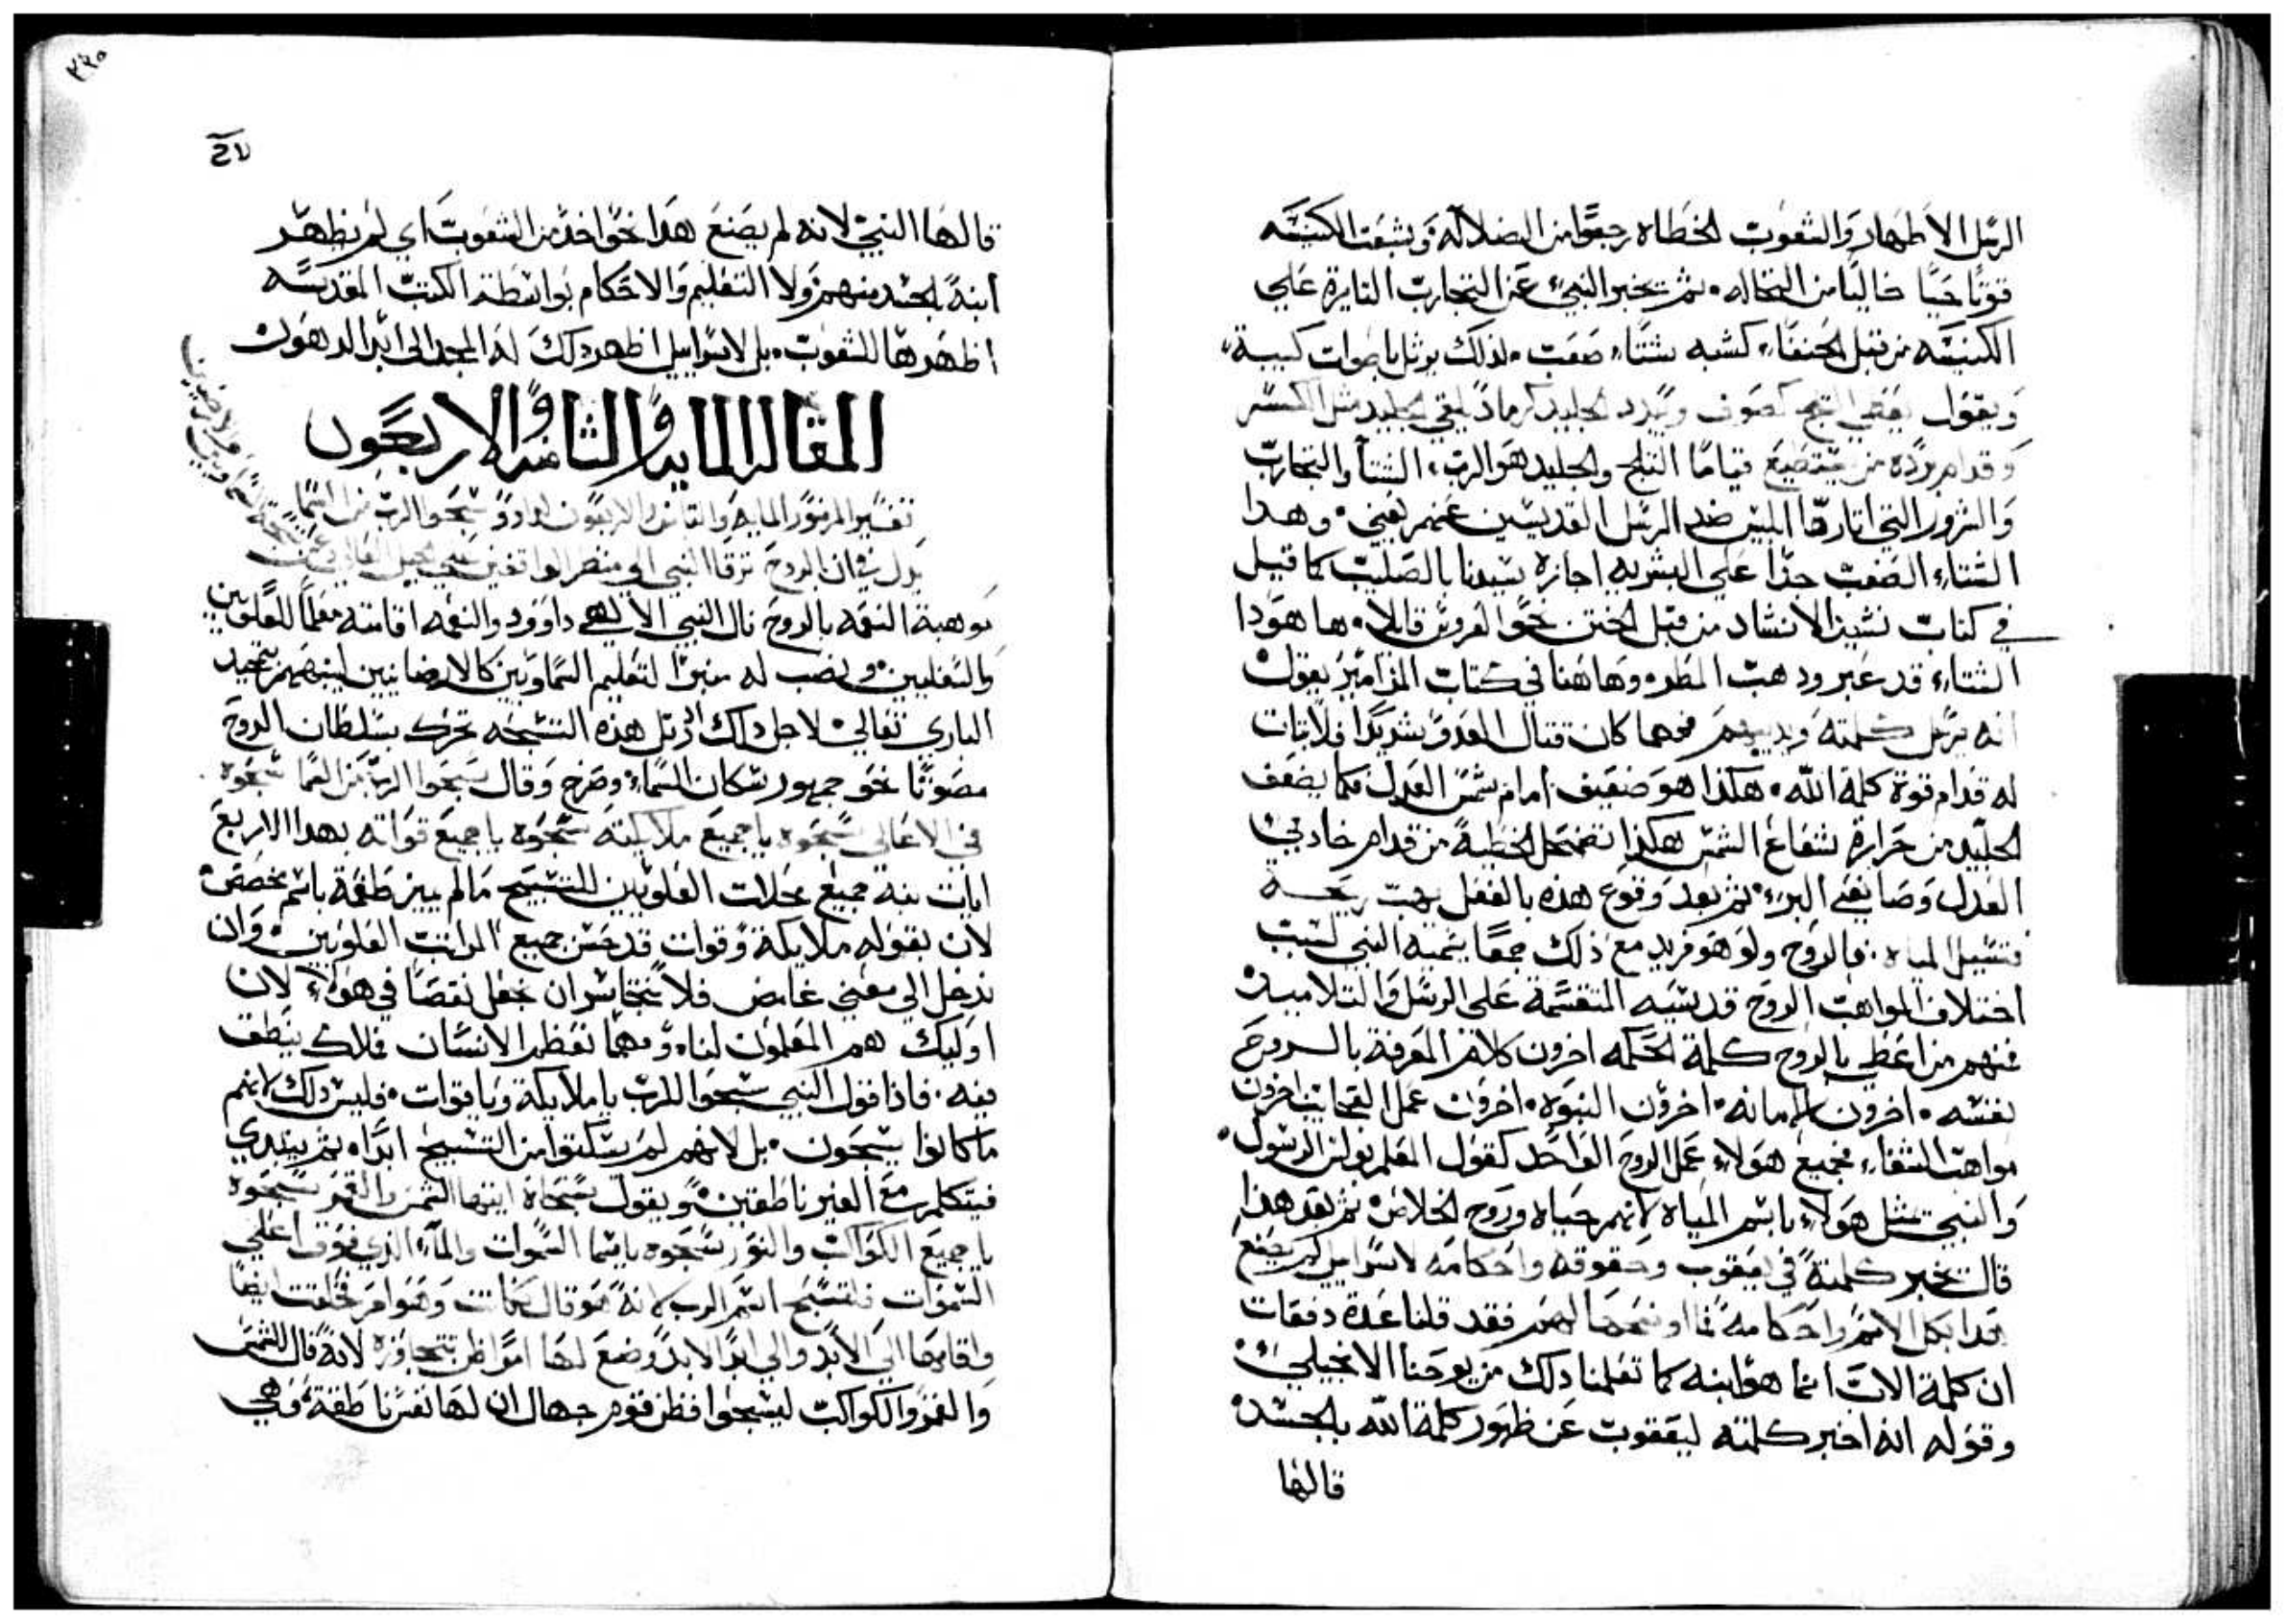 الرسل الاطهار والشعوب الخطاه رجعوا من الضلاله وبشبعت الكنيسه
قوتا حيا خاليا من النخاله. ثم يخبر النبي عن التجارب الثايرة علي
الكنيسه من قبل الحنفاء كشبه شتاء صعب. لذلك يرتل باصوات كييبة
ويقول يعطي الثلج كصوف ويبدد الجليد كرماد يلقي الجليد مثل الكسر
وقدام برده من يستطيع قياما الثلج والجليد هو الرب، الشتا والتجارب
والشرور التي اثارها ابليس ضد الرسل القديسين عنهم يعني. وهدا
الشتاء الصعب جدا علي البشريه اجازه سيدنا بالصليب كما قيل
في كتاب نشيد الانشاد من قبل الختن نحو العروس قايلا. ها هودا
الشتاء قد عبر ودهب المطر. وهاهنا في كتاب المزامير يقول
انه يرسل كلمته ويديبهم فمهما كان قتال العدو شديدا فلا ثبات
له قدام قوة كلمة الله. هكذا هو ضعيف امام شمس العدل فكما يضعف
الجليد من حرارة شعاع الشمس هكذا تضمحل الخطية من قدام خادمي
العدل وصانعي البر. ثم بعد وقوع هذه بالفعل يهب ريحه
فتسيل المياه. فالروح ولو هو فريد مع ذلك جمعا يسميه النبي لسبب
اختلاف المواهب الروح قدسيه المنقسمة علي الرسل والتلاميد
فمنهم من اعطي بالروح كلمة الحكمه اخرون كلام المعرفة بالروح
نفسه. اخرون الامانه. اخرون النبوه. اخرون عمل العجايب اخرون
مواهب الشفاء فجميع هولاء عمل الروح الواحد كقول المعلم بولس الرسول.
والنبي مثل هولاء باسم المياه لانهم حياه وروح الخلاص ثم بعد هذا
قال يخبر كلمته في يعقوب وحقوقه واحكامه لاسراييل لم يصنع
هدا بكل الامم واحكامه ما اوضحها لهم فقد قلنا عدة دفعات
ان كلمة الاب انما هو ابنه كما تعلمنا دلك من يوحنا الانجيلي
وقوله انه اخبر كلمته ليعقوب عن ظهور كلمة الله بالجسد
قالها
٣٩٥
قالها النبي لانه لم يصنع هدا نحو احد من الشعوب اي لم يظهر
ابنه بالجسد منهم ولا التعليم والاحكام بواسطة الكتب المقدسه
اظهرها للشعوب. بل لاسراييل اظهر دلك له المجد الي ابد الدهور
المقاله المايه والثامنه والاربعون
تفسير المزمور المايه والثامن والاربعون لداوود سبحوا الرب من السما
يدل في ان الروح
موهبة النعمه بالروح نال النبي الالهي داوود والنعمه اقامته معلما للعلويين
والسفليين ونصب له منبرا لتعليم السماويين كالارضانيين لينبههم بتمجيد
الباري تعالي لاجل دلك اد رتل هذه التسبحه تحرك بسلطان الروح
مصوتا نحو جمهور سكان السماء وصرخ وقال سبحوا الرب من السما سبحوه
في الاعالي سبحوه يا جميع ملايكته سبحوه يا جميع قواته بهدا الاربع
ايات نبه جميع محلات العلويين للتسبيح مالم يبين طغمة باسم مخصص
لان بقوله ملايكة وقوات قد ضمن جميع المراتب العلويين. وان
ندخل الي معني غامض فلا نتجاسر ان نجعل نقصا في هولاء لان
اوليك هم المعلمون لنا. ومهما تعظم الانسان فلاك ينطق
فيه. فاذا قول النبي سبحوا للرب يا ملايكة ويا قوات. فليس دلك لانهم
ما كانوا يسبحون. بل لانهم لم يسكتوا من التسبيح ابدا. ثم يبتدي
فيتكلم مع الغير ناطقين ويقول سبحاه ايتها الشمس والقمر سبحوه
يا جميع الكواكب والنور سبحوه يا سما السموات والماء الذي فوق اعلي
السموات فلتسبح اسم الرب لانه هو قال فكانت وهو امر فخلقت ايضا
واقامها الي الابد والي ابد الابد وضع لها امرا فلن تتجاوزه لانه قال الشمس
والقمر والكواكب ليسبحوا فظن قوم جهال ان لها نفس ناطقة وهي